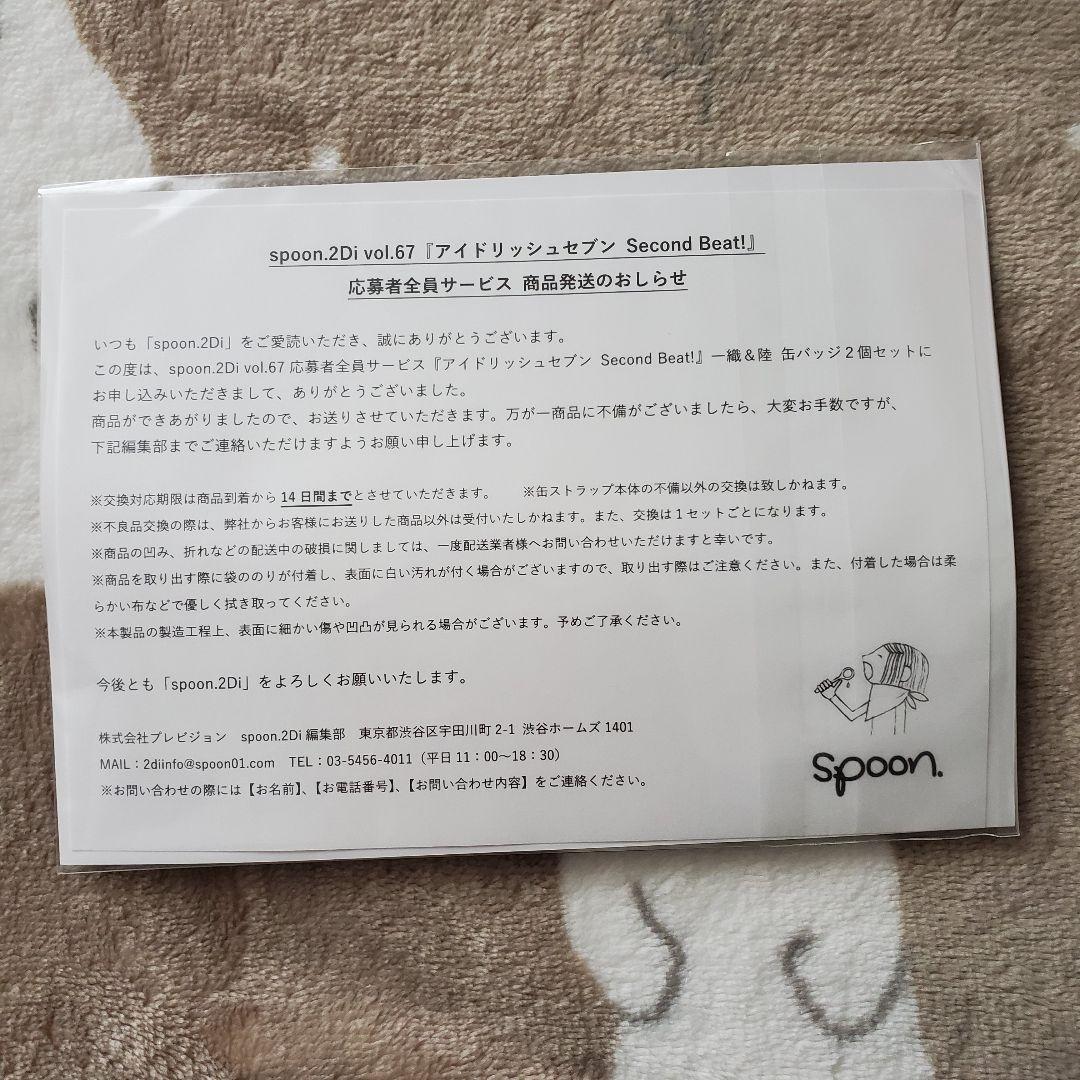 spoon.2Di vol.67『アイドリッシュセブン Second Beat!』
応募者全員サービス 商品発送のおしらせ
いつも「spoon.2Di」をご愛読いただき、誠にありがとうございます。
この度は、spoon.2Di vol.67 応募者全員サービス『アイドリッシュセブン Second Beat!』一織＆陸 缶バッジ２個セットに
お申し込みいただきまして、ありがとうございました。
商品ができあがりましたので、お送りさせていただきます。万が一商品に不備がございましたら、大変お手数ですが、
下記編集部までご連絡いただけますようお願い申し上げます。
※交換対応期限は商品到着から 14 日間までとさせていただきます。　※缶ストラップ本体の不備以外の交換は致しかねます。
※不良品交換の際は、弊社からお客様にお送りした商品以外は受付いたしかねます。また、交換は１セットごとになります。
※商品の凹み、折れなどの配送中の破損に関しましては、一度配送業者様へお問い合わせいただけますと幸いです。
※商品を取り出す際に袋ののりが付着し、表面に白い汚れが付く場合がございますので、取り出す際はご注意ください。また、付着した場合は柔
らかい布などで優しく拭き取ってください。
※本製品の製造工程上、表面に細かい傷や凹凸が見られる場合がございます。予めご了承ください。
今後とも「spoon.2Di」をよろしくお願いいたします。
株式会社プレビジョン　spoon.2Di 編集部　東京都渋谷区宇田川町 2-1 渋谷ホームズ 1401
MAIL：2diinfo@spoon01.com　TEL：03-5456-4011（平日 11：00～18：30）
※お問い合わせの際には【お名前】、【お電話番号】、【お問い合わせ内容】をご連絡ください。
spoon.